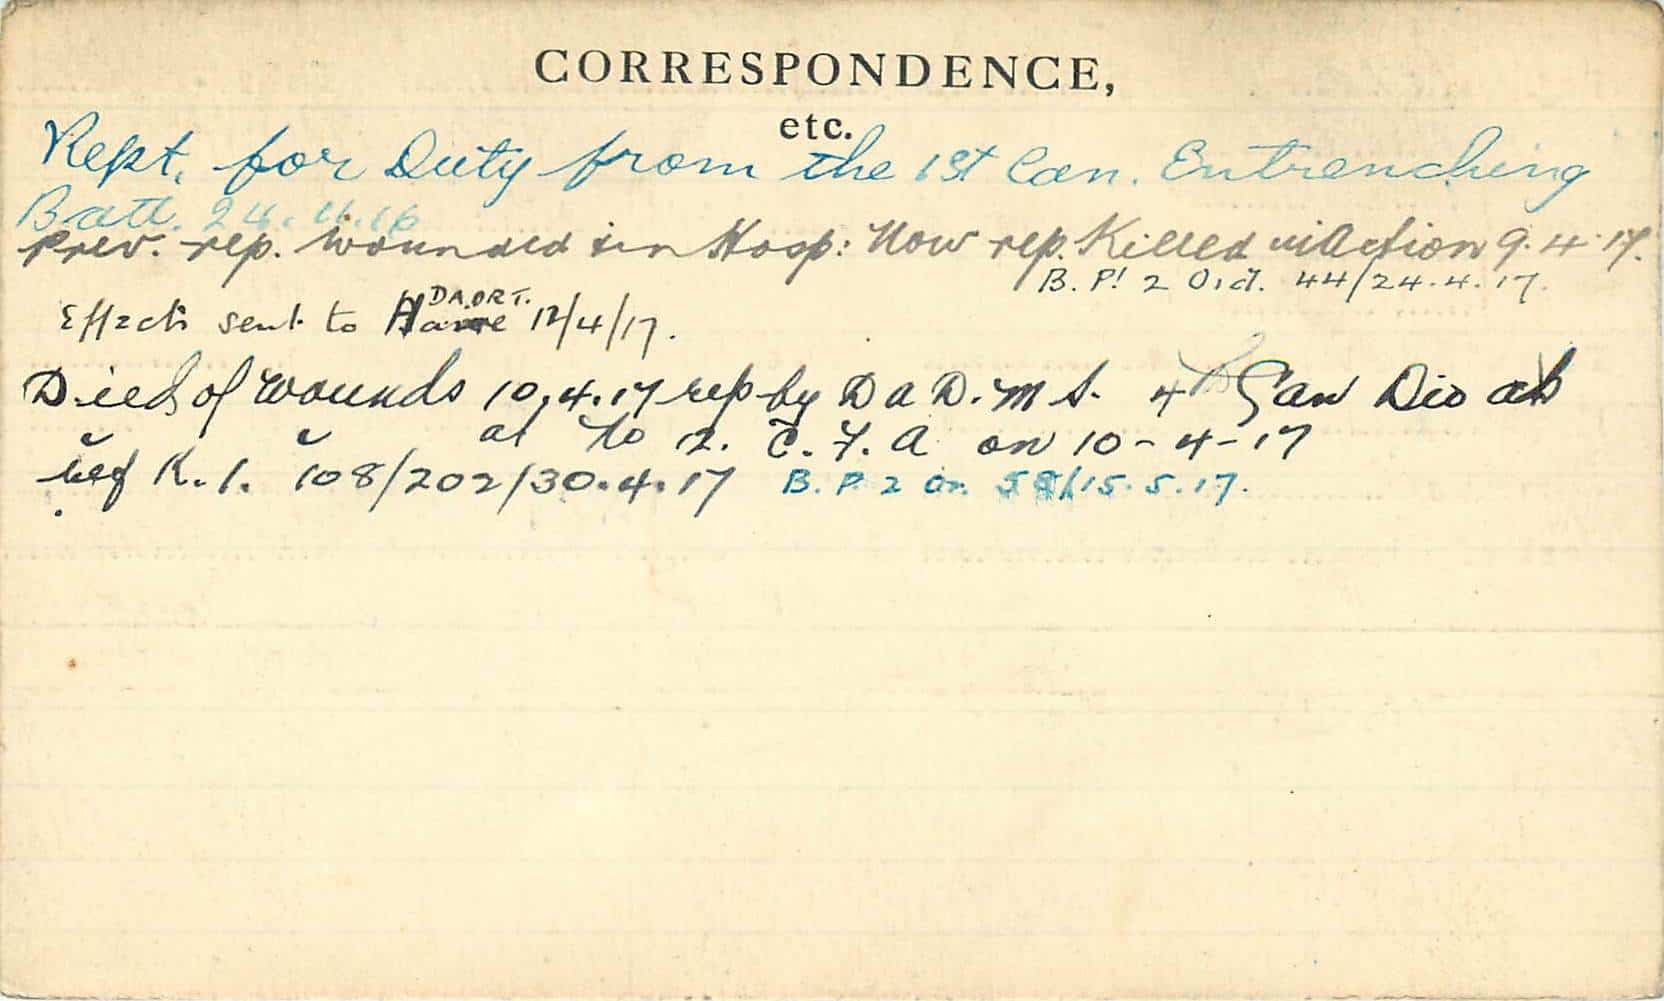 CORRESPONDENCE,
etc.
Rept. for Duty from the 1st Can. Entrenching
Batt. 24.11.16
Prev. rep. wounded in Hosp: Now rep. Killed in Action 9.4.17.
B. P! 2 Ord. 44/24.4.17.
DA.ORT.
Effects sent to Havre 12/4/17.
Died of wounds 10.4.17 rep by D a D. M S. 4th Can Div
at No 12. C. F. A on 10-4-17
K. 1. 108/202/30.4.17 B. P. 2 Or. 58/15.5.17.